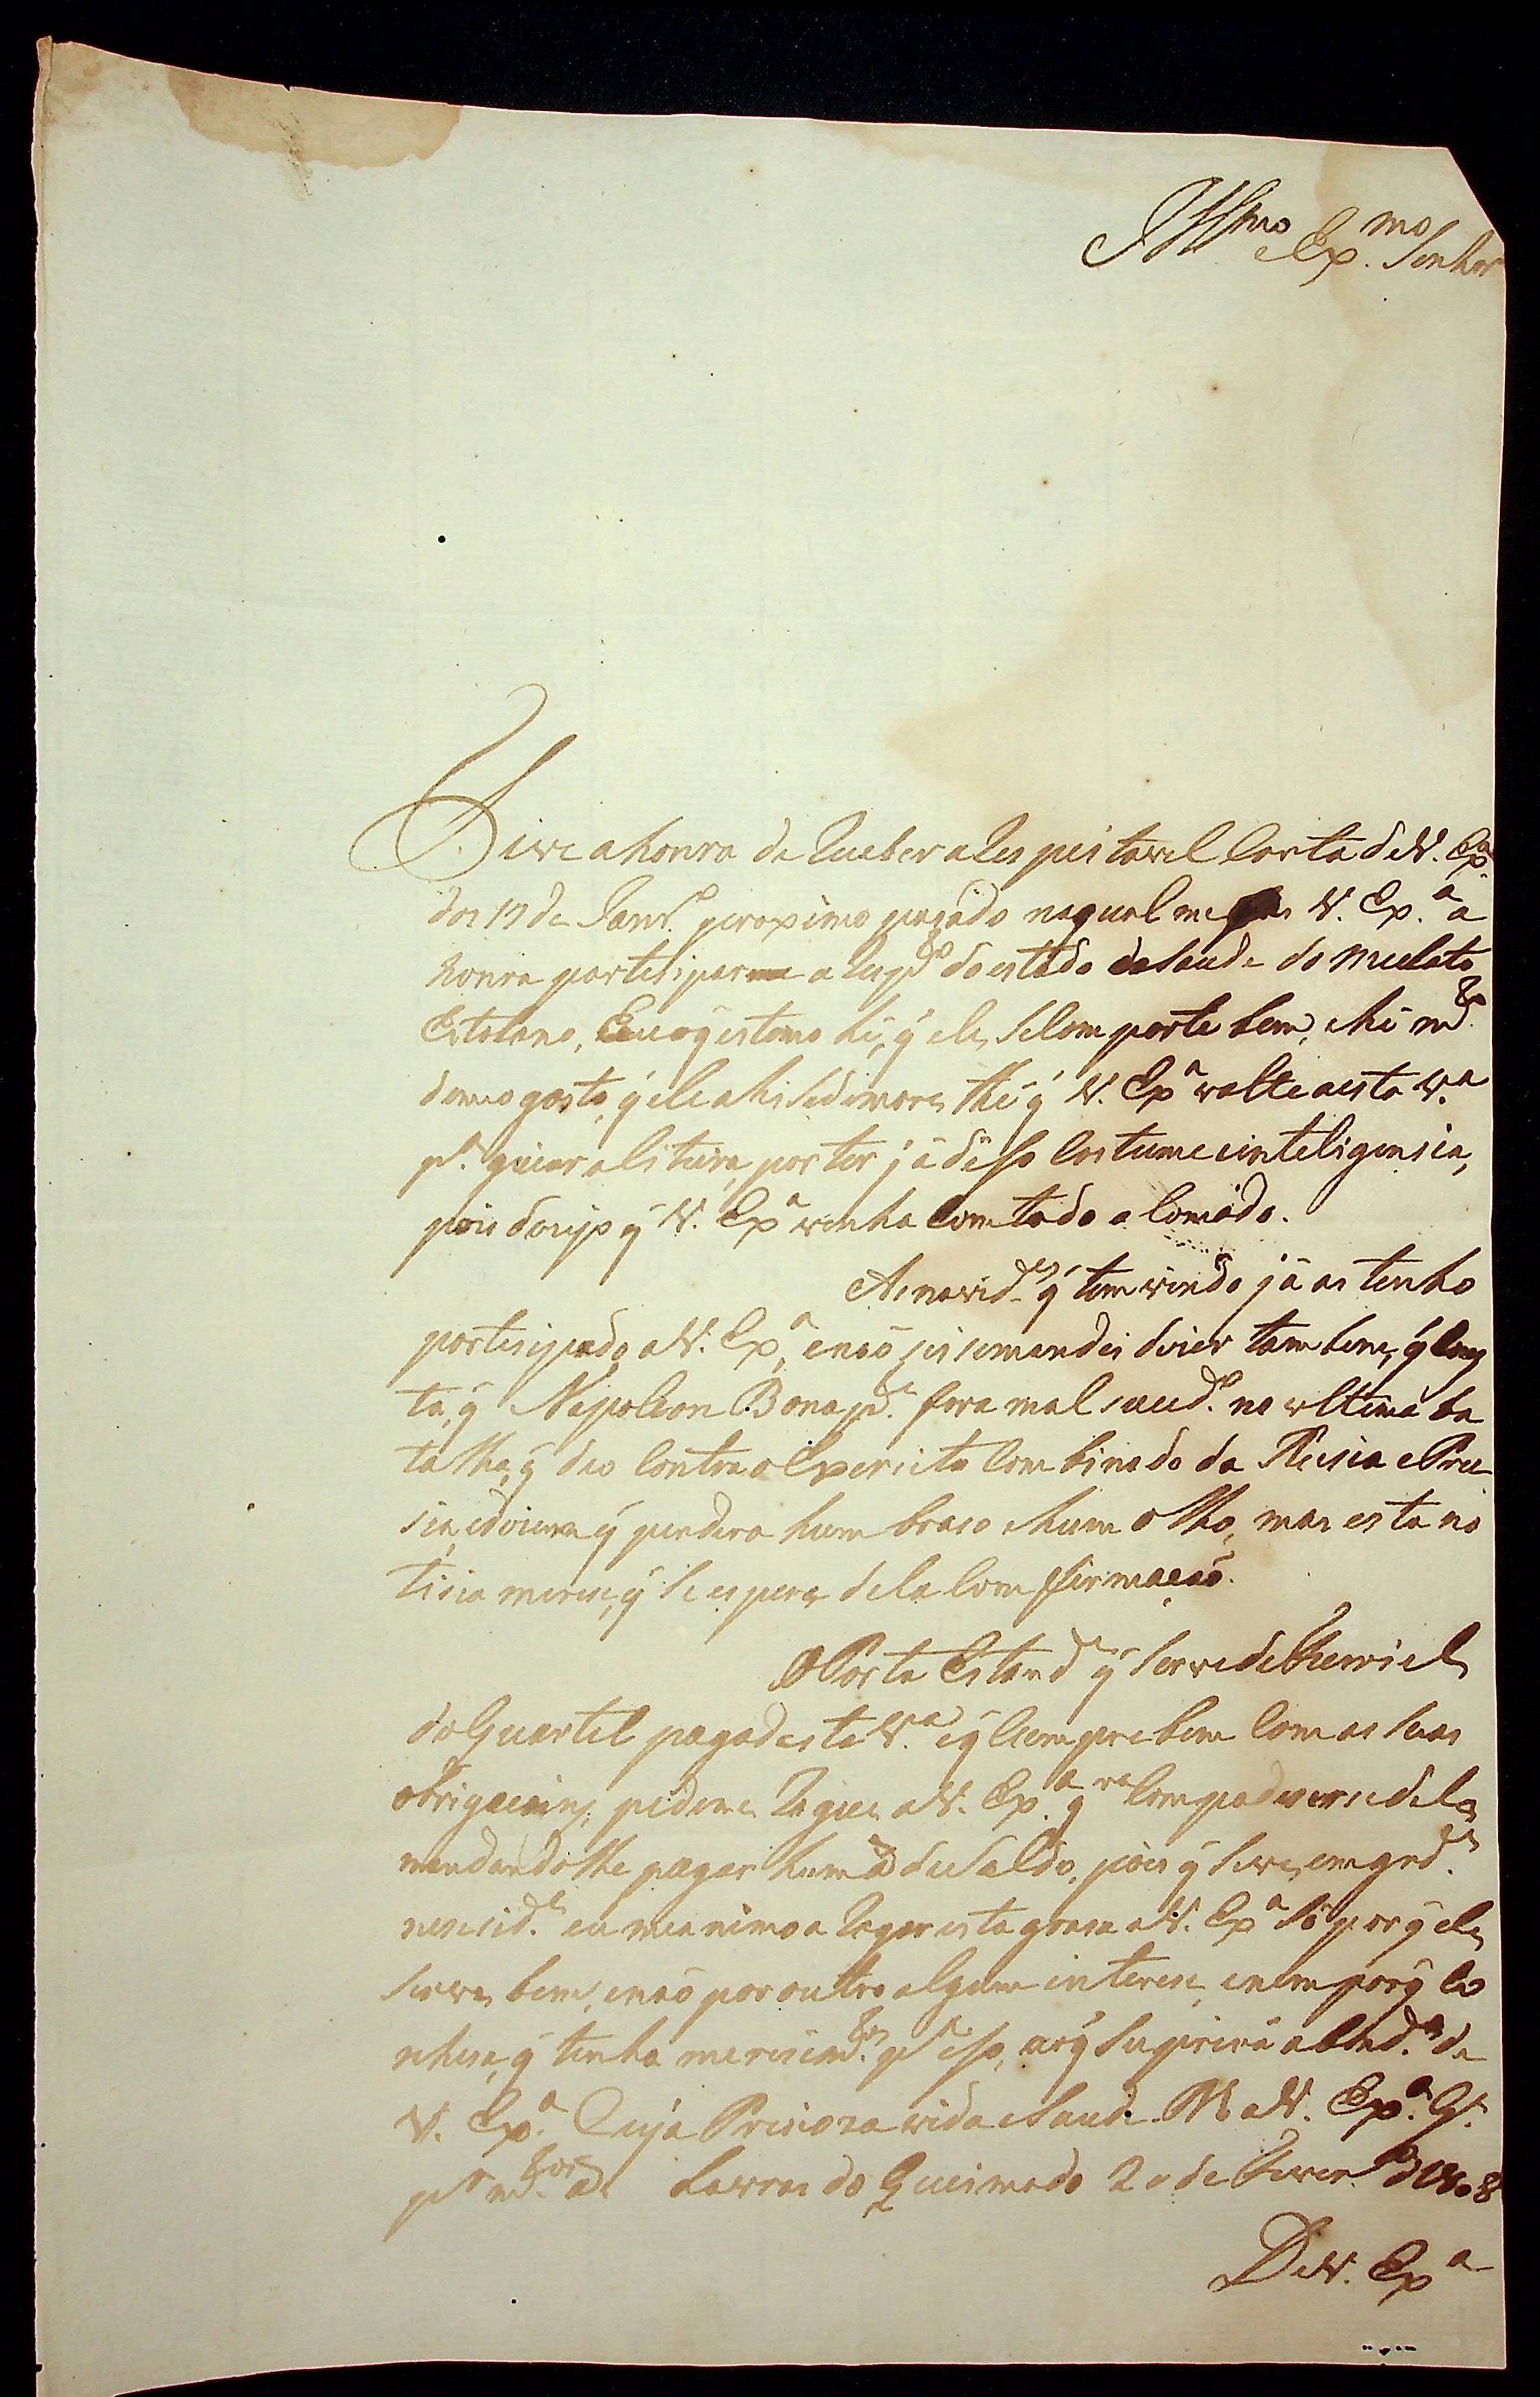 Illmo Exmo Senhor
Tive a honra de Receber a Respeitavel Carta de V. Exa
dos 17 de Janro proximo pasádo na qual me V. Exa a
honra partisipar a Respto do estádo da Saude do Mulato
Estolano, Eu o q estimo hé, q ele Se Comporte bem, e hé mto
do meo gosto, q ele ahi Se dimore, thé q V. Exa volte a esta Va
pa guiar a liteira, por ter já diso Costume e inteligensia,
pois dezejo q V. Exa venha Com todo o Comódo.
As novides q tem vindo já as tenho
partisipado a V. Exa, e naõ sei se mandei dizer tambem, q Cons
ta, q Napoleon Bonapte fora mal sucedo na ultima ba
talha, q deo Contra o Exersito Combinado da Rusia e Pru
sia, e dizem q perdera hum braso e hum olho, mas esta no
tisia merese, q Se espere dela Comfirmaçaõ.
O Porta Estande q Serve de Furriel
do Quartel pago desta Va e q Sempre bem Com as Suas
obrigaçoins, pedeme Rogue a V. Exa qra Compadeserse dele
mandandolhe pagar hum de Saldo, pois q Serve em gnde
neseside eu me animo a Rogar esta grasa a V. Exa Só por q ele
Serve bem, e naõ por outro algum interese, e nem por q Co
nhesa, q tenha meresimtos pa iso, as q Suprirá a bonde de
V. Exa Cuja Presioza vida e Saude Ds a V. Exa Ge
pr mtos as Lavras do Queimado 20 de Fevero de 1808
De V. Exa